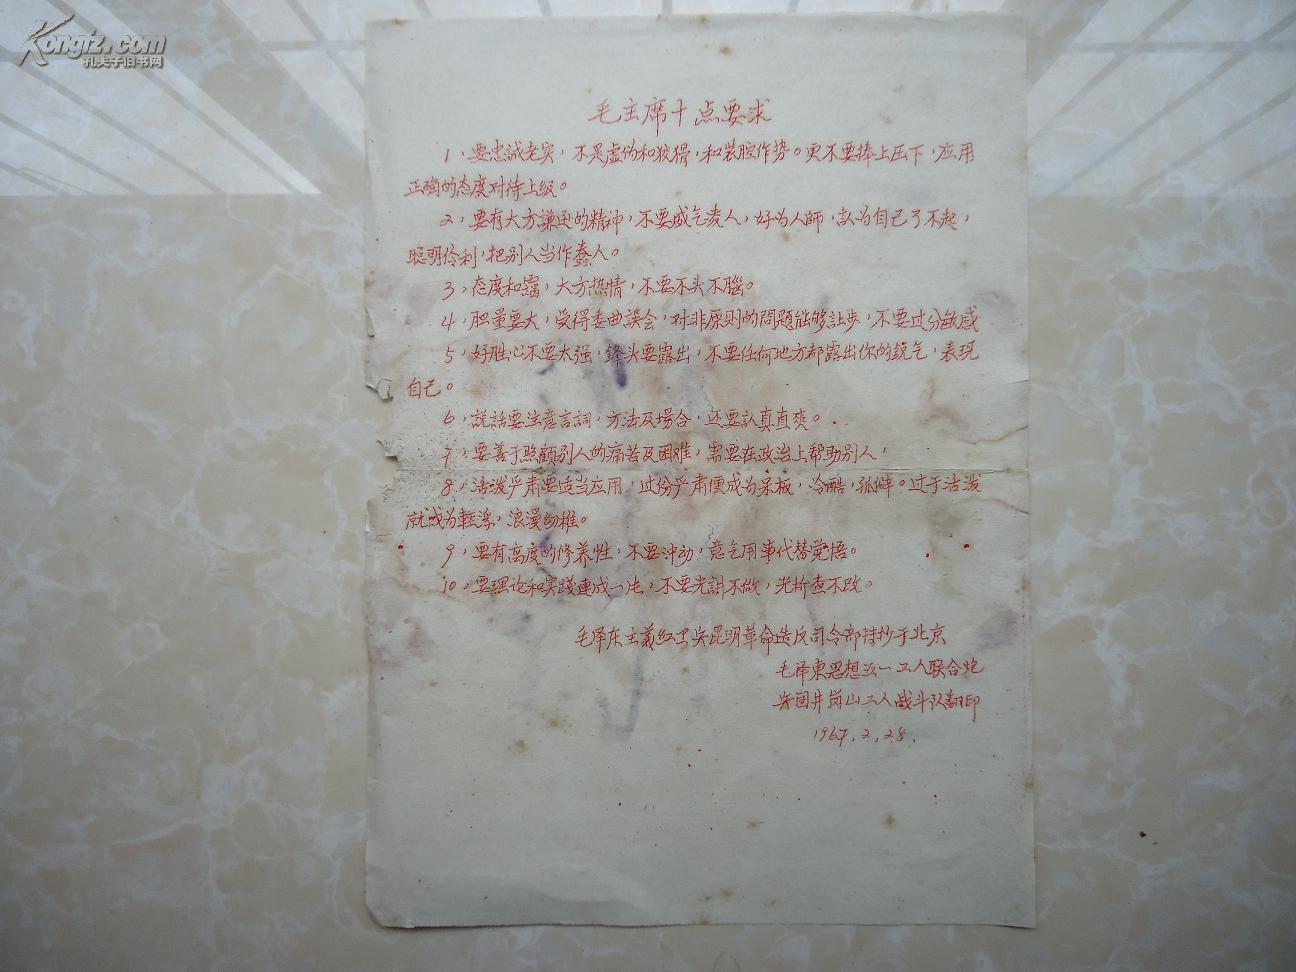 Kongfz.com
孔夫子旧书网
毛主席十点要求
1，要忠誠老实，不是虚伪和狡猾，和装腔作势。更不要捧上压下，应用
正确的态度对待上级。
2，要有大方謙逊的精神，不要盛气凌人，好为人師，認为自己了不起，
聪明伶利，把别人当作蠢人。
3，态度和靄，大方热情，不要不头不腦。
4，胆量要大，受得委曲誤会，对非原则的問题能够让步，不要过分敏感
5，好胜心不要太强，鋒头要露出，不要任何地方都露出你的銳气，表現
自己。
6，説話要注意言詞，方法及場合，还要認真直爽。
7，要善于照顧别人的痛苦及困难，需要在政治上帮助别人，
8，活泼严肃要适当应用，过份严肃便成为呆板，冷酷，孤僻。过于活泼
就成为輕浮，浪漫幼稚。
9，要有高度的修养性，不要冲动，意气用事代替觉悟。
10，要理论和实踐連成一片，不要光講不做，光析查不改。
毛泽东主義红卫兵昆明革命造反司令部转抄于北京
毛泽東思想五一工人联合炮
兵团井岗山工人战斗队翻印
1967.2.28.